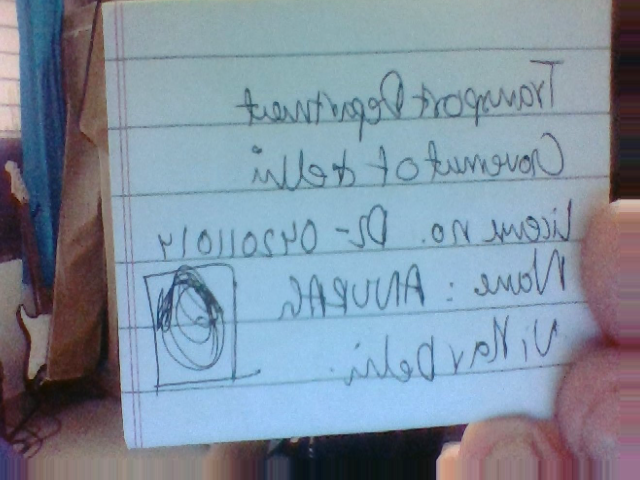 Transport Department
Government of delhi
License no. DL-042011014
Name : ANURAG
Vihav Delhi.